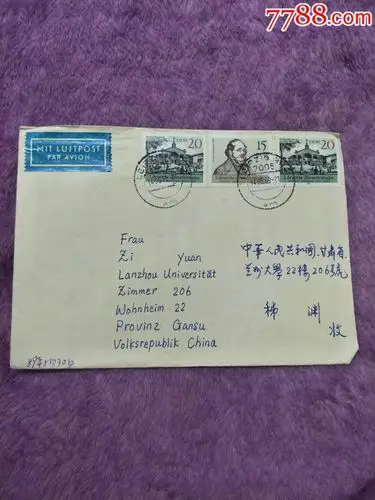 7788.com
MIT LUFTPOST
PAR AVION
DDR
20
15
20
LEIPZIG
7005
Frau
Zi Yuan
Lanzhou Universität
Zimmer 206
Wohnheim 22
Provinz Gansu
Volksrepublik China
中華人民共和国.甘肃省.
兰州大學22楼206号
渊
收